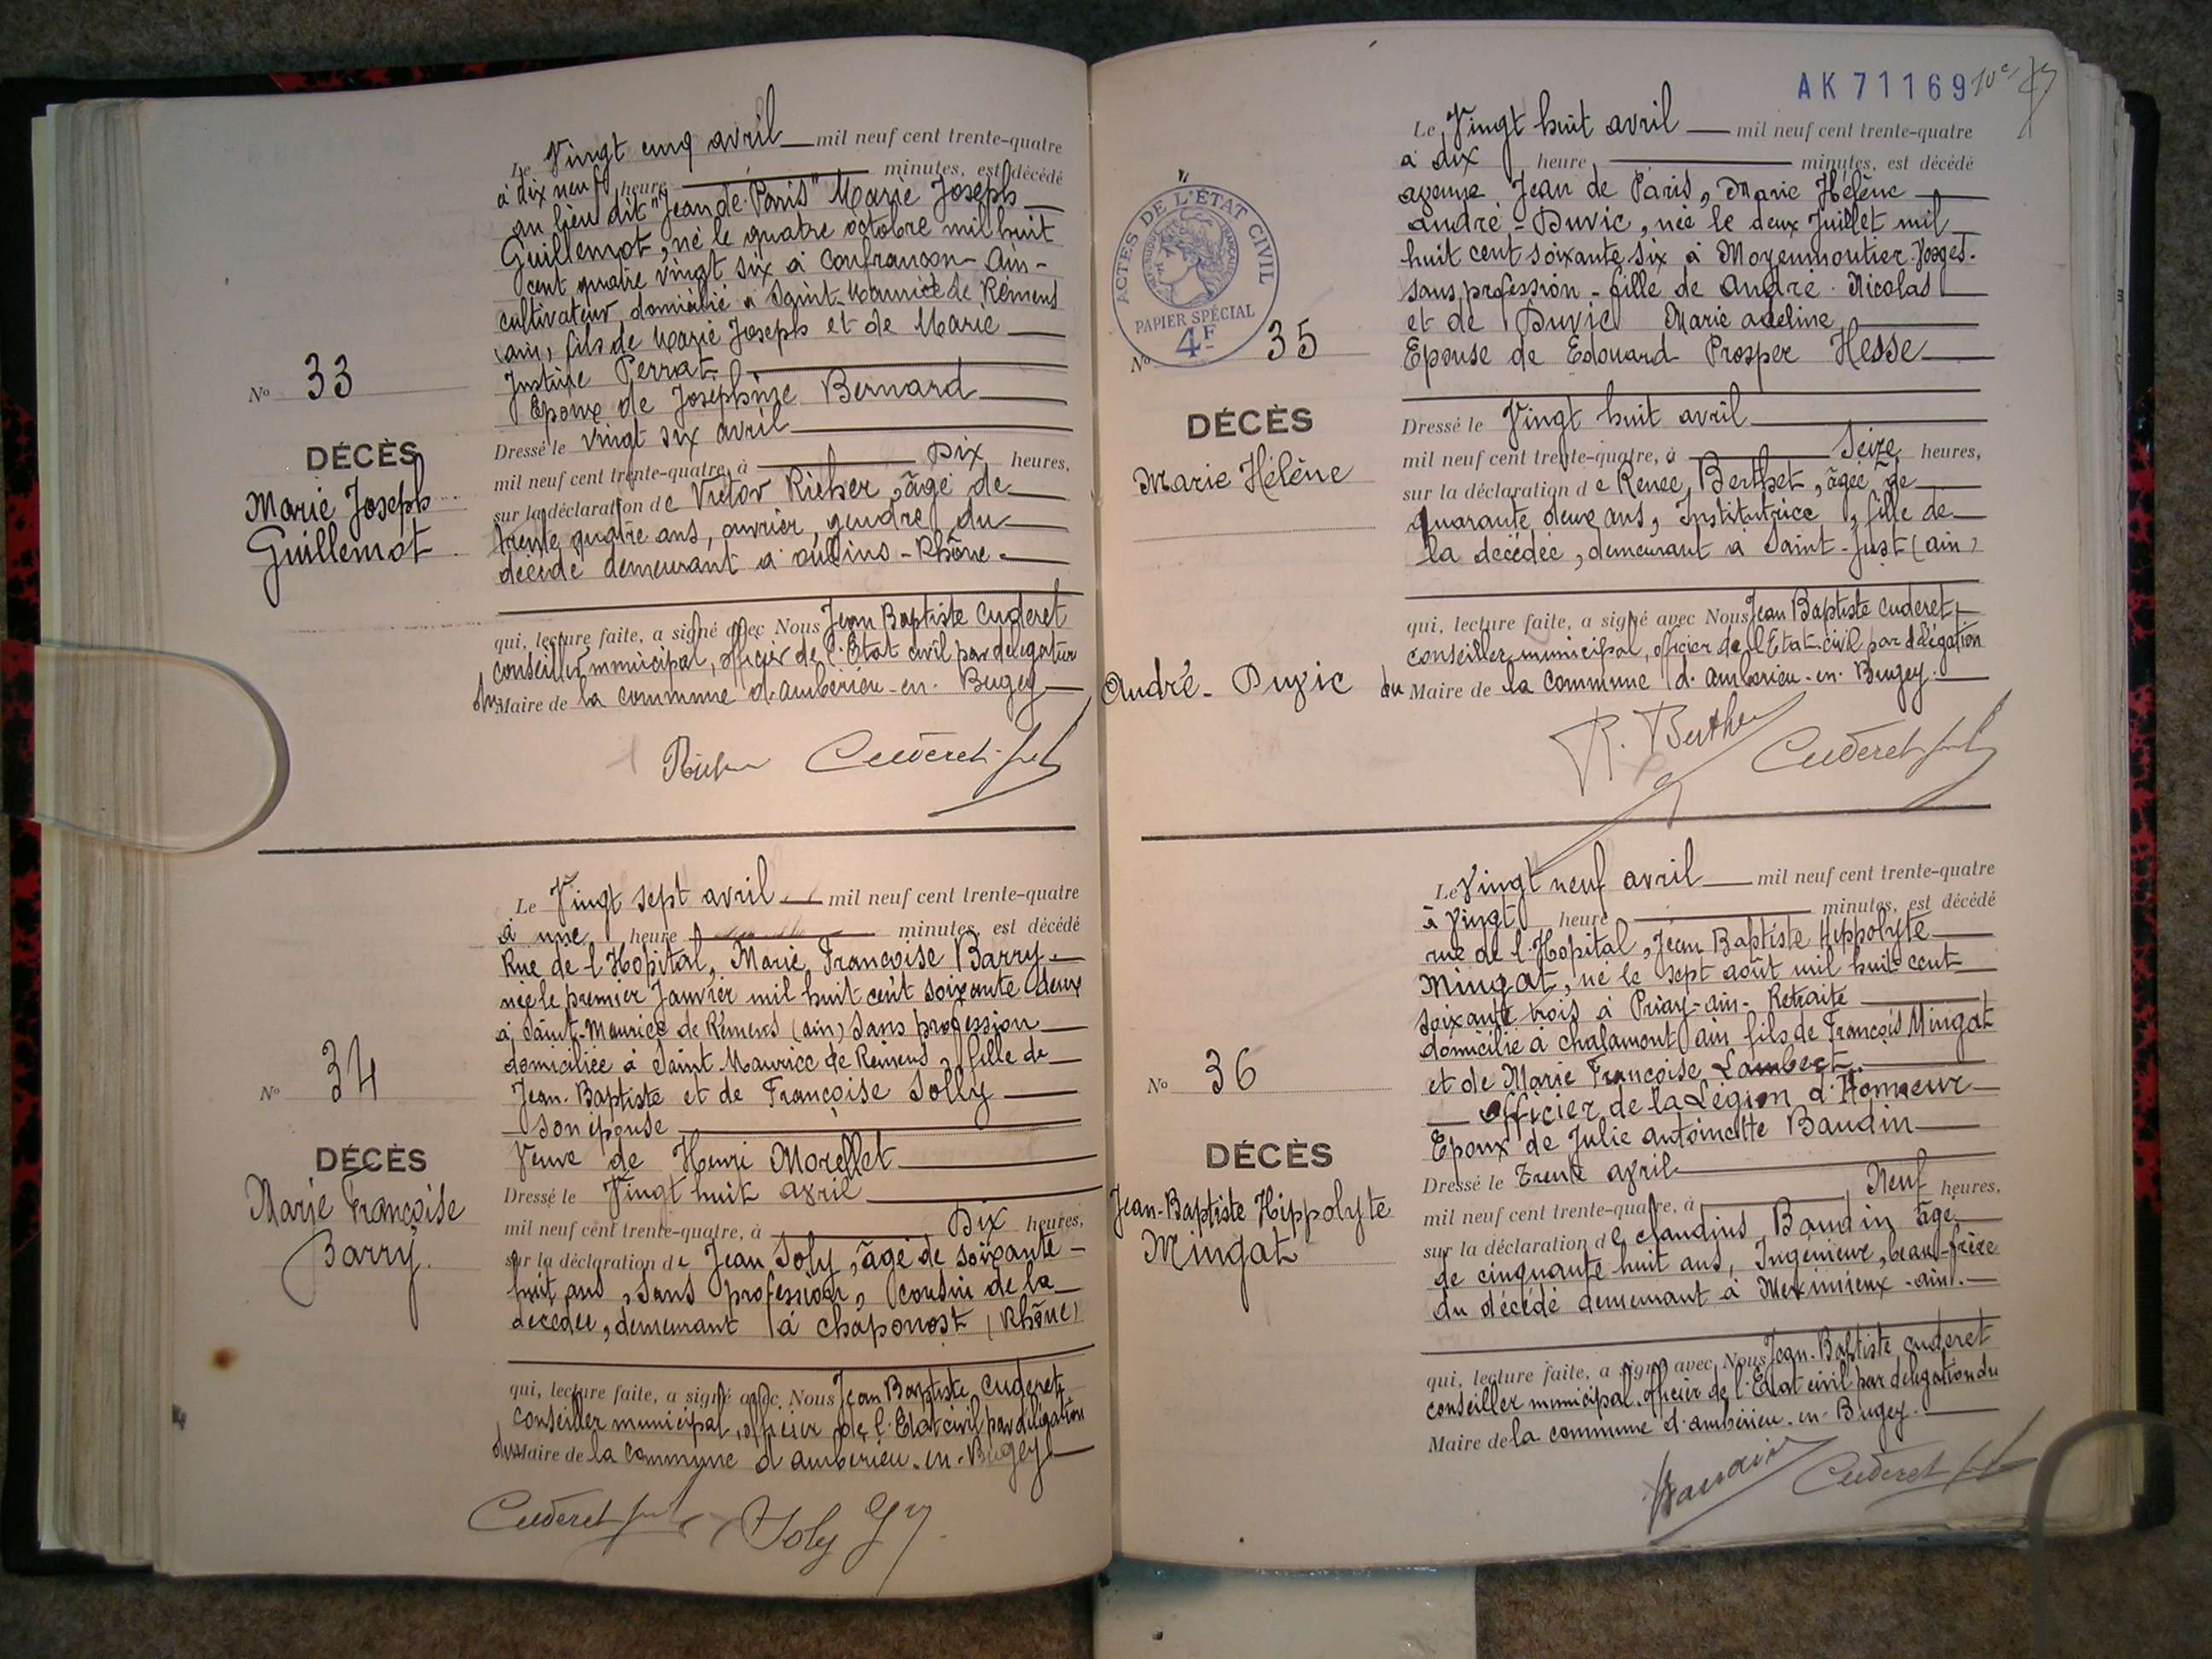 Le Vingt cinq avril mil neuf cent trente-quatre
à dix neuf heure minutes, est décédé
au lieu dit "Jean de Paris" Marie Joseph
Guillemot, né le quatre octobre mil huit
cent quatre vingt six à Confrançon - Ain -
cultivateur domicilié à Saint-Maurice de Rémens
(ain), fils de Marie Joseph et de Marie
Justine Perrat
Epoux de Joséphine Bernard
Nº 33
DÉCÈS
Marie Joseph
Guillemot
Dressé le vingt six avril
mil neuf cent trente-quatre, à Dix heures,
sur la déclaration de Victor Richer, âgé de
trente quatre ans, ouvrier, gendre du
décédé demeurant à oullins - Rhône -
qui, lecture faite, a signé avec Nous Jean Baptiste Cuderet
conseiller municipal, officier de l'Etat civil par délégation
du Maire de la commune d'ambérieu-en-Bugey
Cuderet
Le Vingt sept avril mil neuf cent trente-quatre
à une heure minutes, est décédé
Rue de l'Hopital, Marie Françoise Barry
née le premier Janvier mil huit cent soixante deux
à Saint-Maurice de Rémens (ain) sans profession
domiciliée à Saint-Maurice de Rémens, fille de
Jean-Baptiste et de Françoise Solly
son épouse
Veuve de Henri Morellet
Nº 34
DÉCÈS
Marie Françoise
Barry.
Dressé le Vingt huit avril
mil neuf cent trente-quatre, à Dix heures,
sur la déclaration de Jean Soly, âgé de soixante
huit ans, sans profession, cousin de la
décédée, demeurant à chaponost (Rhône)
qui, lecture faite, a signé avec Nous Jean Baptiste Cuderet
conseiller municipal, officier de l'Etat civil par délégation
du Maire de la commune d'ambérieu-en-Bugey
Cuderet Soly
AK 71169
Le Vingt huit avril mil neuf cent trente-quatre
à dix heure minutes, est décédé
avenue Jean de Paris, Marie Hélène
André-Duvic, née le deux Juillet mil
huit cent soixante six à Moyenmoutier-Vosges-
sans profession - fille de André Nicolas
et de Duvic Marie adeline
Epouse de Edouard Prosper Hesse
ACTES DE L'ÉTAT CIVIL
RÉPUBLIQUE FRANÇAISE
PAPIER SPÉCIAL
4F
Nº 35
DÉCÈS
Marie Hélène
André-Duvic
Dressé le Vingt huit avril
mil neuf cent trente-quatre, à Seize heures,
sur la déclaration de Renée Berthet, âgée de
quarante deux ans, Institutrice, fille de
la décédée, demeurant à Saint-Just (ain)
qui, lecture faite, a signé avec Nous Jean Baptiste Cuderet
conseiller municipal, officier de l'Etat-civil par délégation
du Maire de la commune d'amberieu-en-Bugey.
R. Berthet Cuderet
Le Vingt neuf avril mil neuf cent trente-quatre
à Vingt heure minutes, est décédé
rue de l'Hopital, Jean Baptiste Hippolyte
Mingat, né le sept août mil huit cent
soixante trois à Priay-ain- Retraité
domicilié à chalamont ain fils de François Mingat
et de Marie Françoise Lambert.
officier de la Légion d'Honneur
Epoux de Julie antoinette Baudin
Nº 36
DÉCÈS
Jean-Baptiste Hippolyte
Mingat
Dressé le Trente avril
mil neuf cent trente-quatre, à Neuf heures,
sur la déclaration de claudius Baudin âgé
de cinquante huit ans, Ingénieur, beau-frère
du décédé demeurant à Meximieux -ain-
qui, lecture faite, a signé avec Nous Jean-Baptiste cuderet
conseiller municipal, officier de l'Etat civil par délégation du
Maire de la commune d'ambérieu-en-Bugey.
Baudin Cuderet